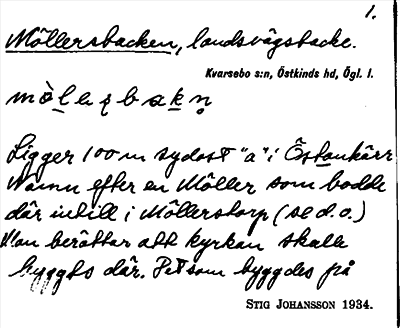 1.
Möllersbacken, landsvägsbacke.
Kvarsebo s:n, Östkinds hd, Ögl. l.
mö̀lersbakn̥
Ligger 100 m sydost "a" i Östankärr
Namn efter en Möller som bodde
där intill i Möllerstorp (se d. o.)
Man berättar att kyrkan skulle
byggts där. Det som byggdes på
STIG JOHANSSON 1934.